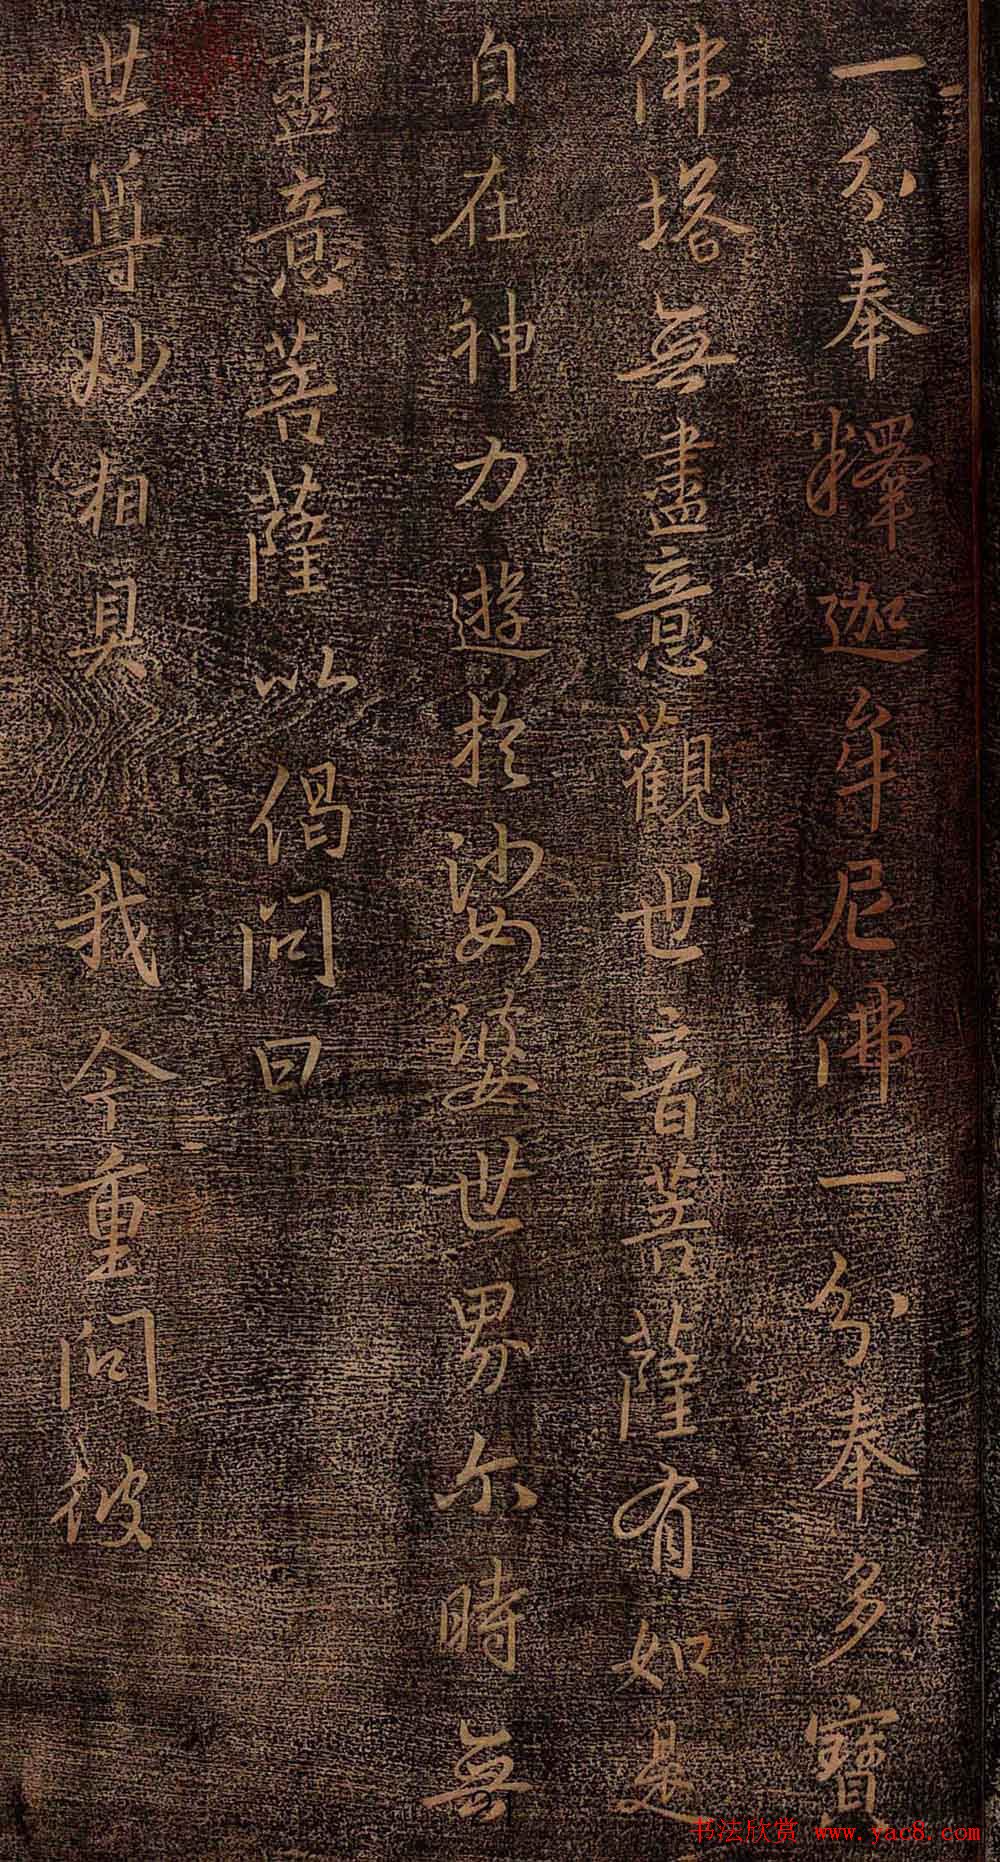 一分奉釋迦牟尼佛一分奉多寶
佛塔無盡意觀世音菩薩有如是
自在神力遊於娑婆世界尔時無
盡意菩薩以偈問曰
世尊妙相具 我今重問彼
书法欣赏 www.yac8.com